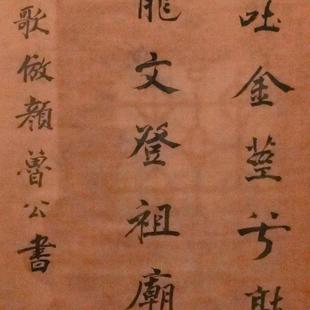 吐金莖兮
龍文登祖廟
歌倣顏魯公書